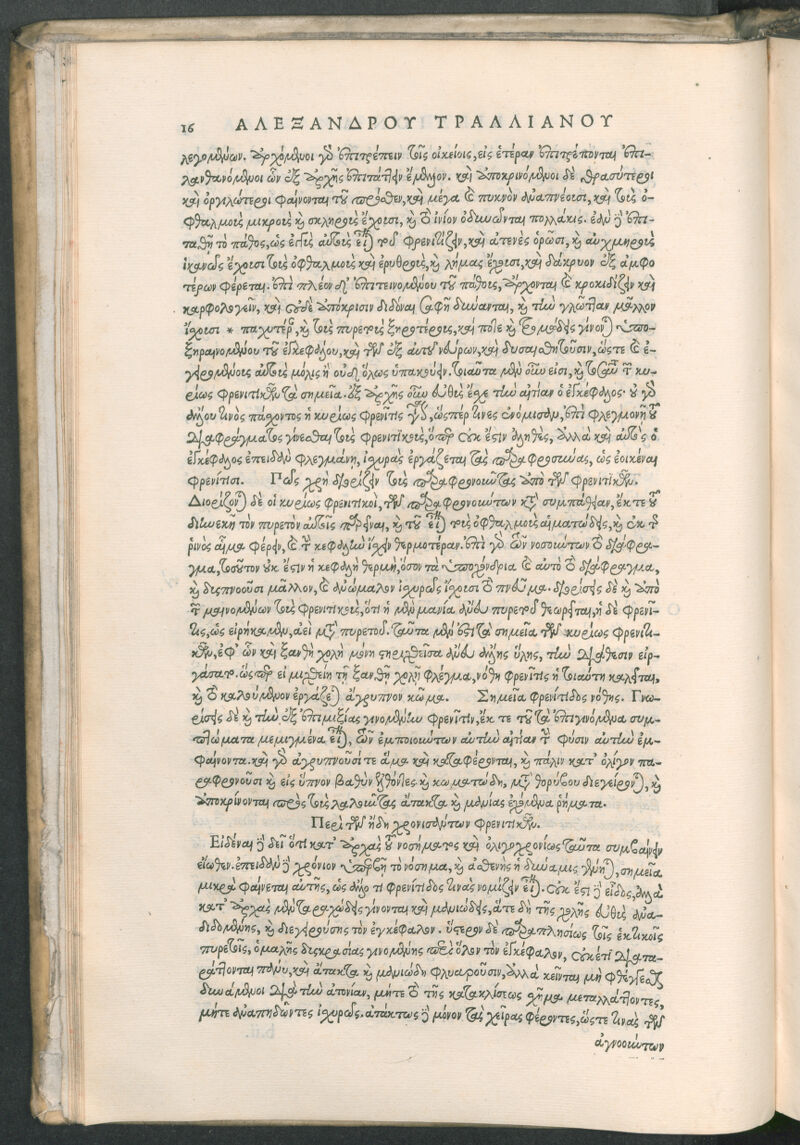 16 ΑΛΕΞΑΝΔΡΟΥ ΤΡΑΛΛΙΑΝΟΥ
λεγομένων. ἀρχόμενοι γὸ ἐπιτρέπειν τοῖς οἰκείοις, εἰς ἑτέραν ἐπιτρέπονται ἐπι-
λανθανόμενοι ὧν ἐξ ἀρχῆς ἐπιτάττειν ἔμελλον. καὶ ἀποκρινόμενοι δὲ θρασύτεροι
καὶ ὀργιλώτεροι φαίνονται τοῦ πρόσθεν, καὶ μέγα καὶ πυκνὸν ἀναπνέουσι, καὶ τοῖς ὀ-
φθαλμοῖς μικροῖς καὶ σκληροῖς ἔχουσι, καὶ τὸ ἰνίον ὀδυνῶνται πολλάκις. ἐὰν δὲ ἐπι-
ταθῇ τὸ πάθος, ὡς ἐγγὺς αὐτοῖς εἶναι τοῦ φρενιτίζειν, καὶ ἀτενὲς ὁρῶσι, καὶ αὐχμηροῖς
ἱκανῶς ἔχουσι τοῖς ὀφθαλμοῖς καὶ ἐρυθροῖς, καὶ λήμας ἔχουσι, καὶ δάκρυον ἐξ ἀμφο
τέρων φέρεται. ἐπὶ πλέον δ' ἐπιτεινομένου τοῦ πάθους, ἄρχονται καὶ κροκιδίζειν καὶ
καρφολογεῖν, καὶ οὐδὲ ἀπόκρισιν διδόναι σαφῆ δύνανται, καὶ τὴν γλῶτταν μᾶλλον
ἔχουσι * παχυτέραν, καὶ τοῖς πυρετοῖς ξηροτέροις, καὶ ποτε καὶ τρομώδεις γίνονται ὑπο-
ξηραινομένου τοῦ ἐγκεφάλου, καὶ τῶν ἐξ αὐτοῦ νεύρων, καὶ δυσαισθητοῦσιν, ὥστε καὶ ἐ-
γειρομένους αὐτοὺς μόλις ἢ οὐδ' ὅλως ὑπακούειν. τοιαῦτα μὲν οὖν εἰσι, καὶ τοσαῦτα τῶν κυ-
ρίως φρενιτικῶν τὰ σημεῖα. ἐξ ἀρχῆς οὖν εὐθὺς ἔχει τὴν αἰτίαν ὁ ἐγκέφαλος· οὐ γὸ
ἄλλου τινὸς πάσχοντος ἡ κυρίως φρενῖτις γίνεται, ὥσπερ τινες ἐνόμισαν, ἐπὶ φλεγμονῇ τοῦ
διαφράγματος γίνεσθαι τοῖς φρενιτικοῖς, ὅπερ οὐκ ἔστιν ἀληθές, ἀλλὰ καὶ αὐτὸς ὁ
ἐγκέφαλος ἐπειδὰν φλεγμάνῃ, ἰσχυρὰς ἐργάζεται τὰς παραφροσύνας, ὡς ἐοικέναι
φρενίτισι. Πῶς χρὴ διορίζειν τοὺς παραφρονοῦντας ἀπὸ τῶν φρενιτικῶν.
Διορίζονται δὲ οἱ κυρίως φρενιτικοὶ, τῶν παραφρονούντων κατὰ συμπάθειαν, ἔκ τε τοῦ
διηνεκῆ τὸν πυρετὸν αὐτοῖς παρεῖναι, καὶ τοῦ εἶναι τοὺς ὀφθαλμοὺς αἱματώδεις, καὶ ἐκ τῆς
ῥινὸς αἷμα φέρειν, καὶ τὴν κεφαλὴν ἴσχειν θερμοτέραν. ἐπὶ γὸ τῶν νοσούντων τὸ διάφρα-
γμα, τοσοῦτον οὐκ ἔστιν ἡ κεφαλὴ θερμή, ὅσον τὰ ὑποχόνδρια καὶ αὐτὸ τὸ διάφραγμα,
καὶ δυσπνοοῦσι μᾶλλον, καὶ ἀνώμαλον ἰσχυρῶς ἴσχουσι τὸ πνεῦμα. διορίσεις δὲ καὶ ἀπὸ
τῶν μαινομένων τοὺς φρενιτικοὺς, ὅτι ἡ μὲν μανία ἄνευ πυρετοῦ θεωρεῖται, ἡ δὲ φρενῖ-
τις, ὡς εἰρήκαμεν, ἀεὶ μετὰ πυρετοῦ. ταῦτα μὲν ἐπὶ τὰ σημεῖα τῶν κυρίως φρενιτι-
κῶν, ἐφ' ὧν καὶ ξανθὴ χολὴ μόνη στηριχθεῖσα ἄνευ ἄλλης ὕλης, τὴν διάθεσιν εἰρ-
γάσατο. ὥσπερ εἰ μιχθείη τῇ ξανθῇ χολῇ φλέγμα, νόθη φρενῖτις ἡ τοιαύτη καλεῖται,
καὶ τὸ καλούμενον ἐργάζεται ἄγρυπνον κῶμα. Σημεῖα φρενίτιδος νόθης. Γνω-
ρίσεις δὲ καὶ τὴν ἐξ ἐπιμιξίας γινομένην φρενῖτιν, ἔκ τε τοῦ τὰ ἐπιγινόμενα συμ-
πτώματα μεμιγμένα εἶναι, τῶν ἐμποιούντων αὐτὴν αἰτίαν τὴν φύσιν αὐτὴν ἐμ-
φαίνοντα. καὶ γὸ ἀγρυπνοῦσί τε ἅμα καὶ καταφέρονται, καὶ πάλιν κατ' ὀλίγον πα-
ραφρονοῦσι καὶ εἰς ὕπνον βαθὺν ἐλθόντες καὶ κωματώδη, μετὰ θορύβου διεγείρονται, καὶ
ἀποκρίνονται πρὸς τοὺς λαλοῦντας ἄτακτα καὶ μανίας ἐχόμενα ῥήματα.
Περὶ τῶν ἤδη χρονισάντων φρενιτικῶν.
Εἰδέναι δὲ δεῖ ὅτι κατ' ἀρχὰς τοῦ νοσήματος καὶ ὀλιγοχρονίως ταῦτα συμβαίνειν
εἴωθεν. ἐπειδὰν δὲ χρόνιον ὑπάρξῃ τὸ νόσημα, καὶ ἀσθενὴς ἡ δύναμις γένηται, σημεῖα
μικρὰ φαίνεται αὐτῆς, ὡς ἄλλο τι φρενίτιδος τινὰς νομίζειν εἶναι. οὐκ ἔστι δὲ εἶδος, ἀλλὰ
κατ' ἀρχὰς μὲν ταραχώδεις γίνονται καὶ μανιώδεις, ἅτε δὴ τῆς χολῆς εὐθὺς ἀνα-
διδομένης, καὶ διεγειρούσης τὸν ἐγκέφαλον. ὕστερον δὲ παραπλησίως τοῖς ἑκτικοῖς
πυρετοῖς, ὁμαλῆς δυσκρασίας γινομένης περὶ ὅλον τὸν ἐγκέφαλον, οὐκέτι διατα-
ράττονται πάνυ, καὶ ἄτακτα καὶ μανιώδη φλυαροῦσιν, ἀλλὰ κεῖνται μὴ φθέγξασθαι
δυνάμενοι διὰ τὴν ἀτονίαν, μήτε τὸ τῆς κατακλίσεως σχῆμα μεταλλάττοντες,
μήτε ἀναπηδῶντες ἰσχυρῶς. ἀτάκτως δὲ μόνον τὰς χεῖρας φέροντες, ὥστε τινὰς τῶν
ἀγνοούντων